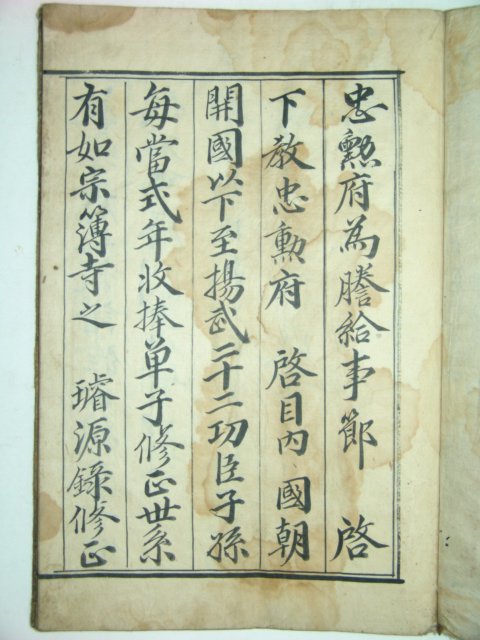 忠勲府為謄給事節 啓
下教忠勲府 啓目内 國朝
開國以下至揚武二十二功臣子孫
每當式年收捧单子修正世系
有如宗簿寺之 璿源錄修正